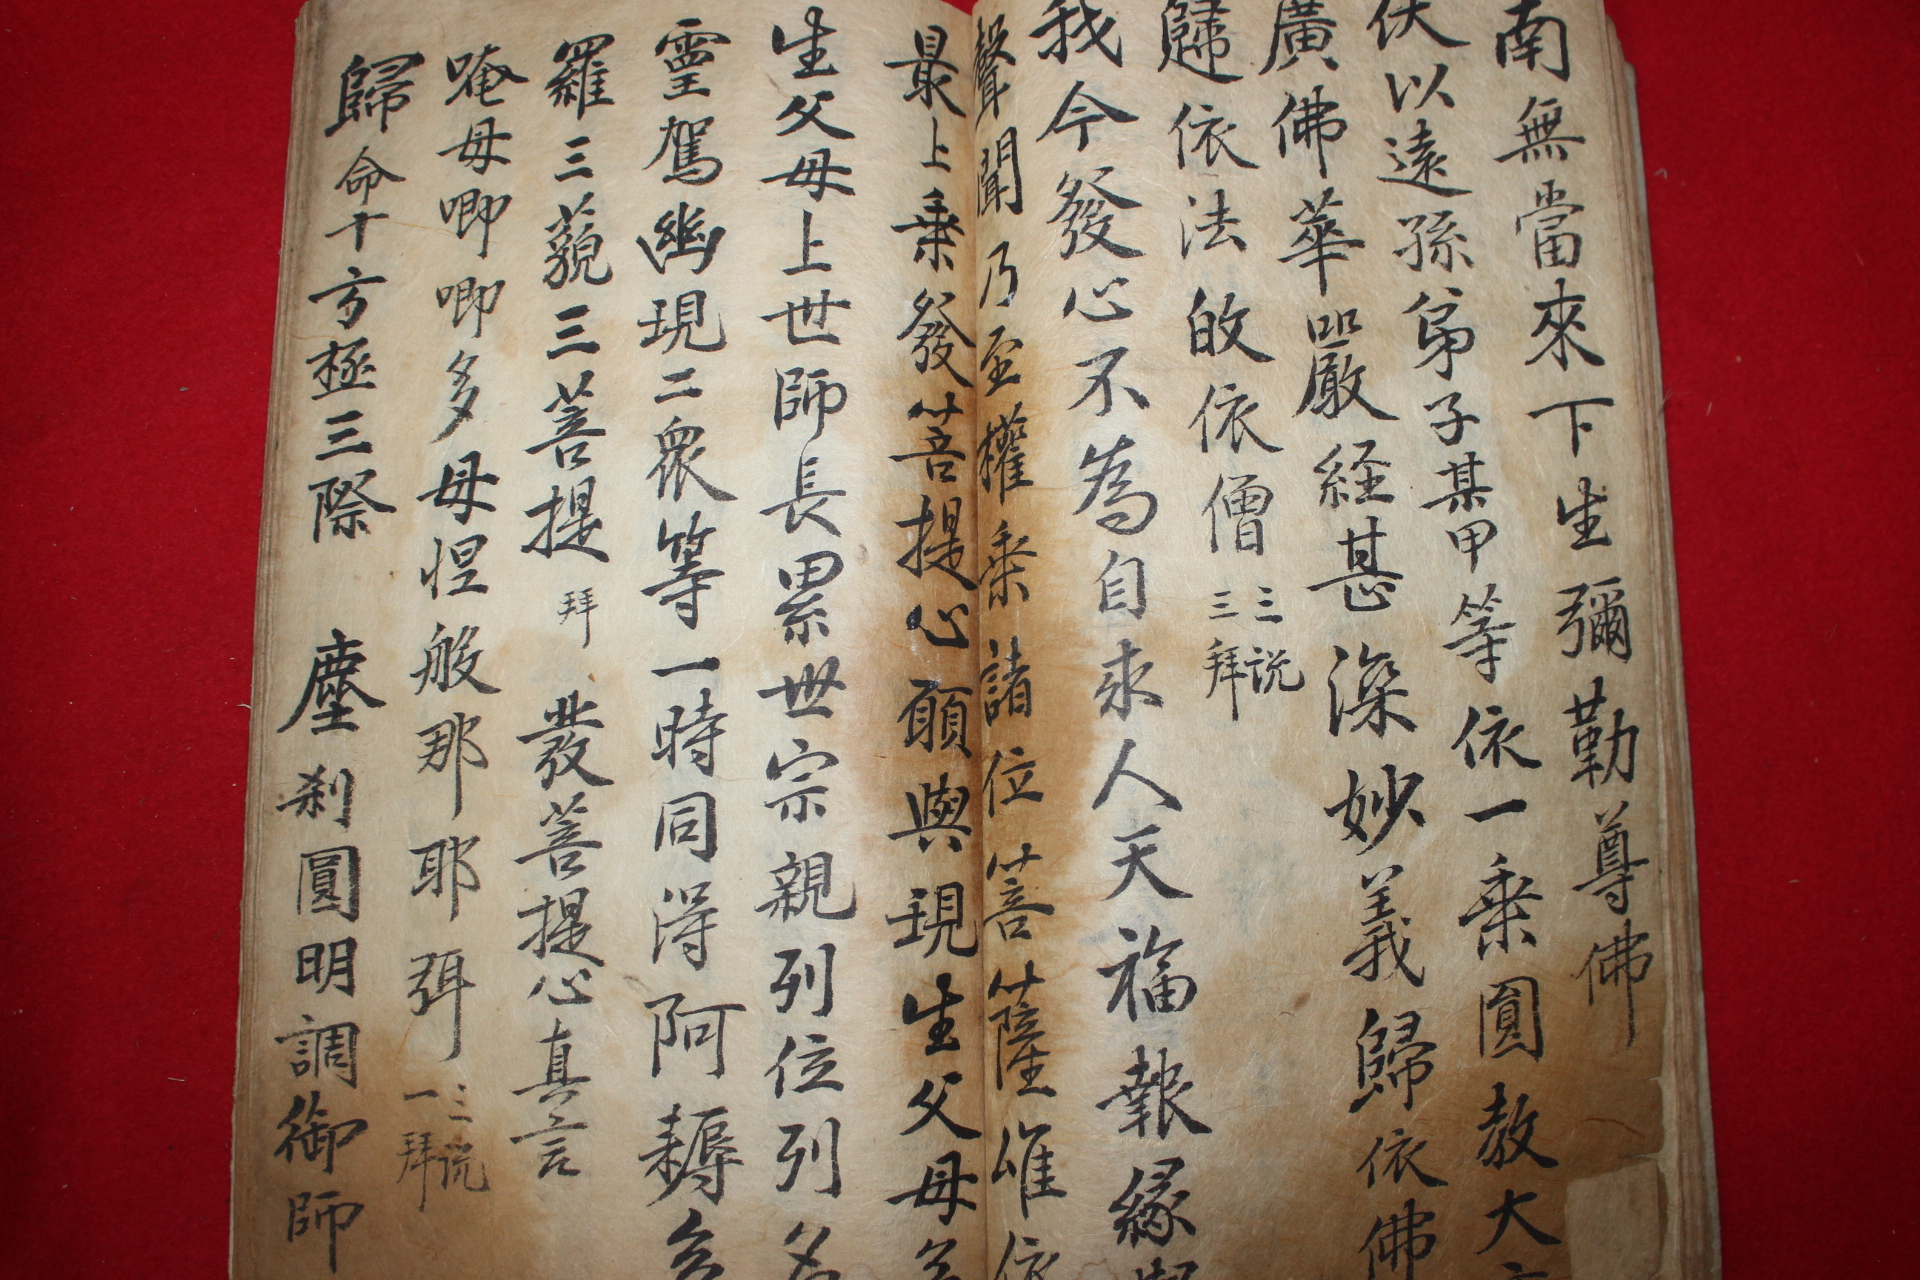 南無當來下生彌勒尊佛
伏以遠孫弟子某甲等依一乘圓教大方
廣佛華嚴経甚深妙義歸依佛
歸依法皈依僧 三説三拜
我今發心不為自求人天福報緣覺
聲聞乃至權乘諸位菩薩唯依
最上乘發菩提心願與現生父母多
生父母上世師長累世宗親列位列名
靈駕幽現二衆等一時同淂阿耨多
羅三藐三菩提 拜 發菩提心真言
唵母唧唧多母怛般那耶弭 三説一拜
歸命十方極三際 塵刹圓明調御師